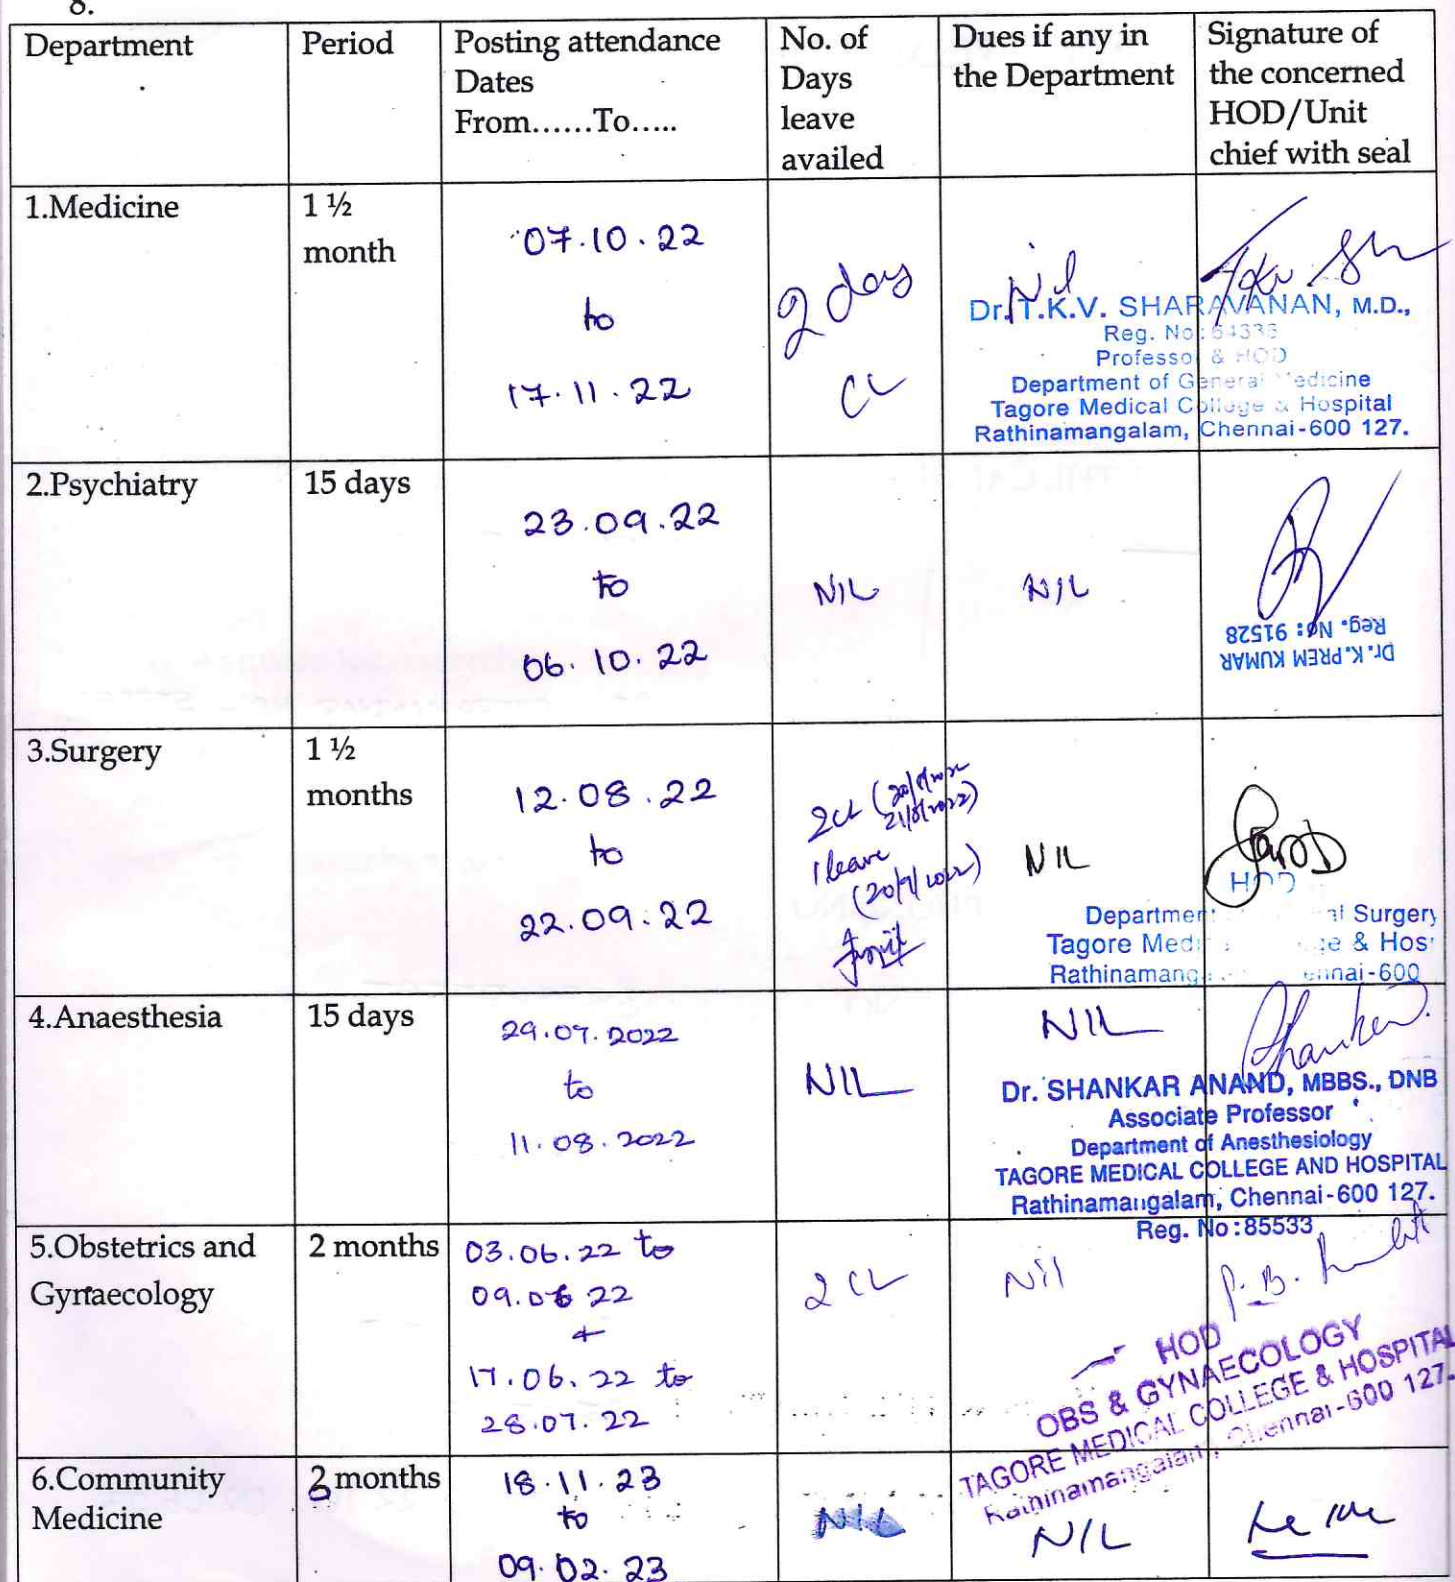 8.
Department
Period
Posting attendance
Dates
From......To.....
No. of
Days
leave
availed
Dues if any in
the Department
Signature of
the concerned
HOD/Unit
chief with seal
1.Medicine
1 ½
month
07.10.22
to
17.11.22
2 days
CL
Nil
Dr. T.K.V. SHARAVANAN, M.D.,
Reg. No: 64336
Professor & HOD
Department of General Medicine
Tagore Medical College & Hospital
Rathinamangalam, Chennai-600 127.
2.Psychiatry
15 days
23.09.22
to
06.10.22
NIL
NIL
Dr. K.PREM KUMAR
Reg. No: 91528
3.Surgery
1 ½
months
12.08.22
to
22.09.22
2CL (20/8/2022
21/8/2022)
1 leave
(20/9/2022)
NIL
HOD
Department al Surgery
Tagore Med ge & Hos
Rathinamang ennai-600
4.Anaesthesia
15 days
29.07.2022
to
11.08.2022
NIL
NIL
Shankar
Dr. SHANKAR ANAND, MBBS., DNB
Associate Professor
Department of Anesthesiology
TAGORE MEDICAL COLLEGE AND HOSPITAL
Rathinamangalam, Chennai-600 127.
Reg. No:85533
5.Obstetrics and
Gynaecology
2 months
03.06.22 to
09.06 22
+
17.06.22 to
28.07.22
2 CL
Nil
P.B.
HOD
OBS & GYNAECOLOGY
TAGORE MEDICAL COLLEGE & HOSPITAL
Rathinamangalam, Chennai-600 127.
6.Community
Medicine
3 months
18.11.23
to
09.02.23
Nil
NIL